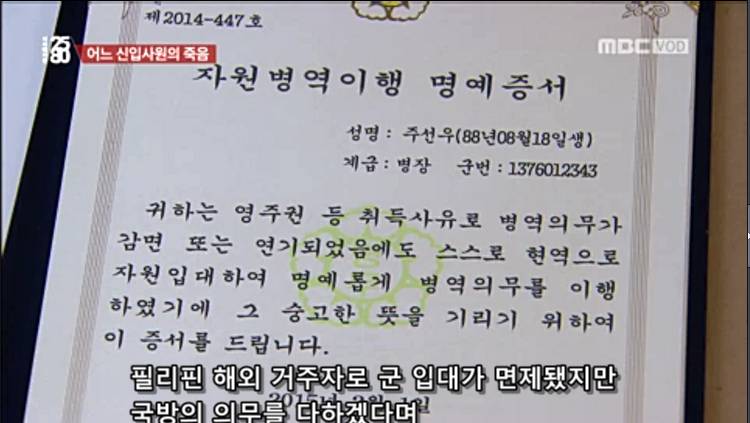 제2014-447호
2580
어느 신입사원의 죽음
MBC VOD
자원병역이행 명예증서
성명 : 주선우(88년08월18일생)
계급 : 병장 군번 : 1376012343
귀하는 영주권 등 취득사유로 병역의무가
감면 또는 연기되었음에도 스스로 현역으로
자원입대하여 명예롭게 병역의무를 이행
하였기에 그 숭고한 뜻을 기리기 위하여
이 증서를 드립니다.
필리핀 해외 거주자로 군 입대가 면제됐지만
2015년
국방의 의무를 다하겠다며